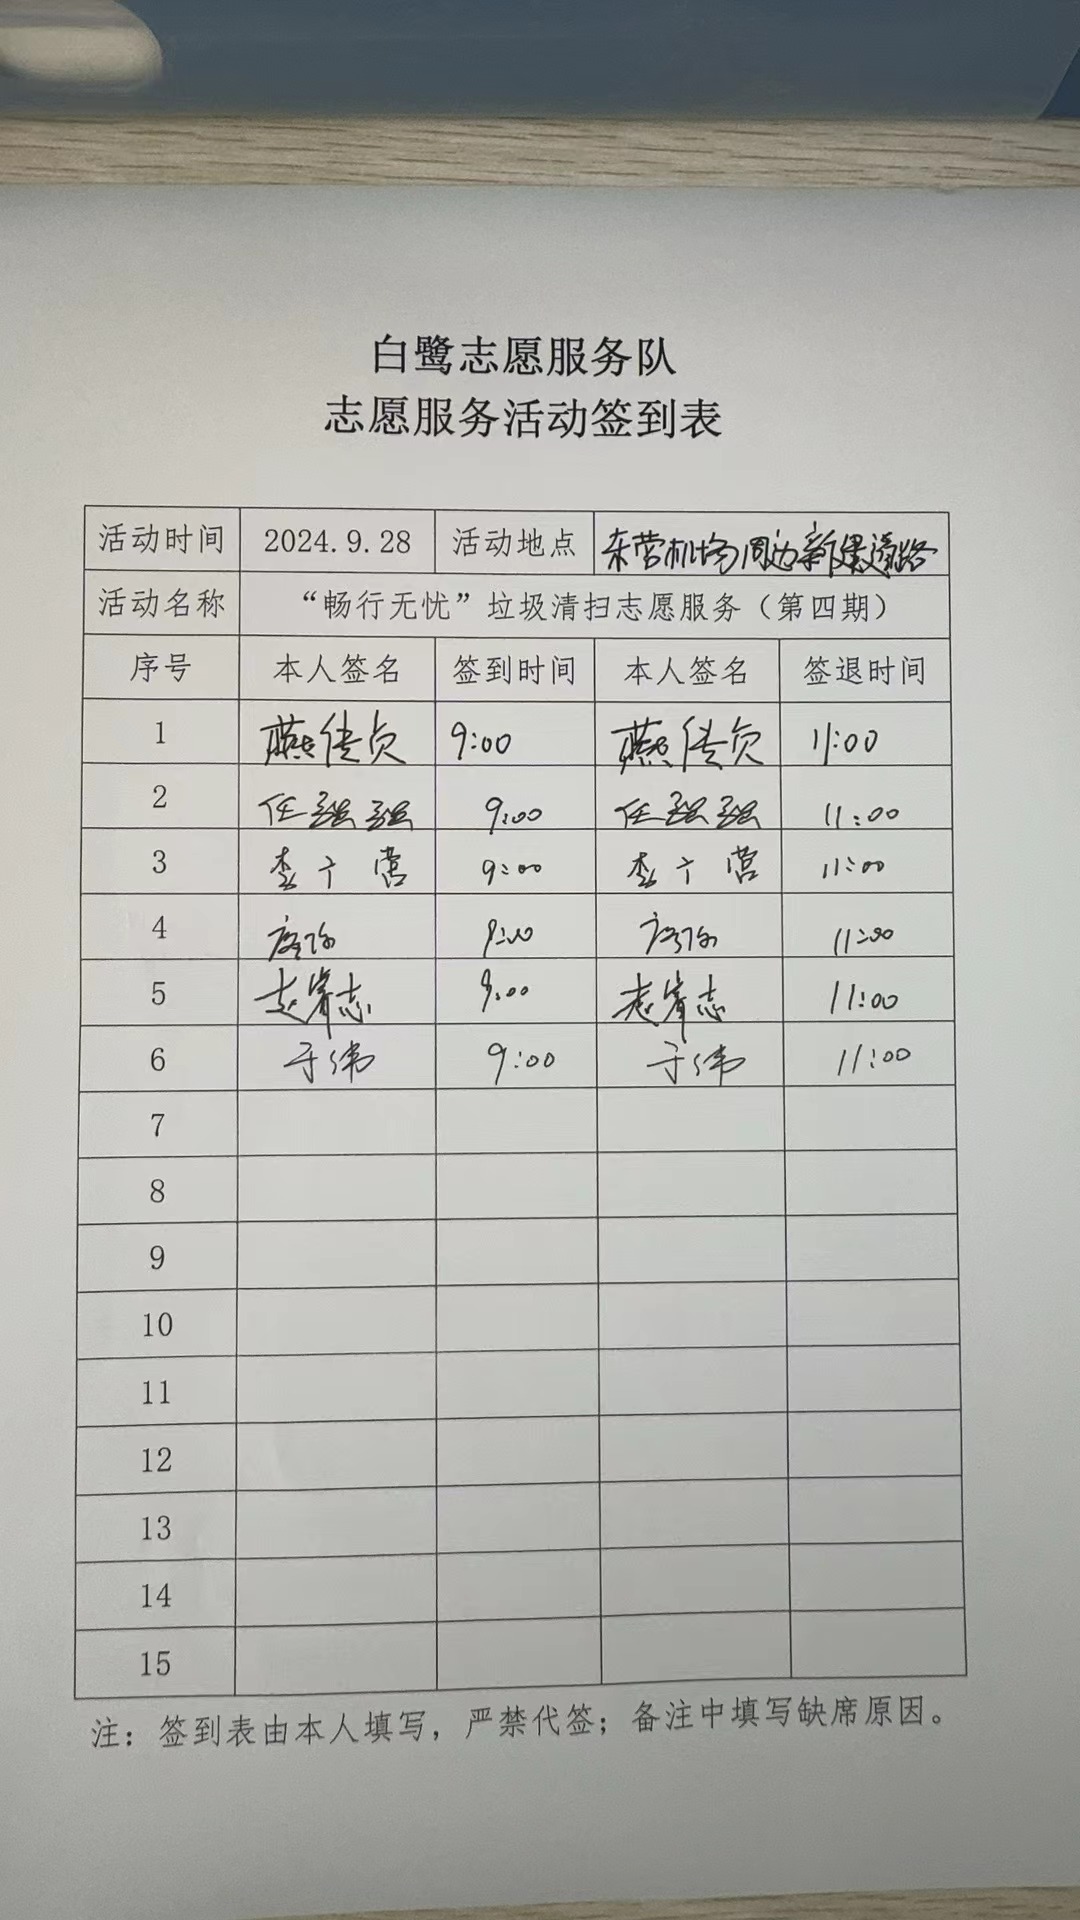 白鹭志愿服务队
志愿服务活动签到表
活动时间 2024.9.28 活动地点 东营机场周边新建道路
活动名称 “畅行无忧”垃圾清扫志愿服务（第四期）
序号 本人签名 签到时间 本人签名 签退时间
1 燕传贞 9:00 燕传贞 11:00
2 任强强 9:00 任强强 11:00
3 李广营 9:00 李广营 11:00
4 9:00 11:00
5 志 9:00 志 11:00
6 于伟 9:00 于伟 11:00
7
8
9
10
11
12
13
14
15
注：签到表由本人填写，严禁代签；备注中填写缺席原因。